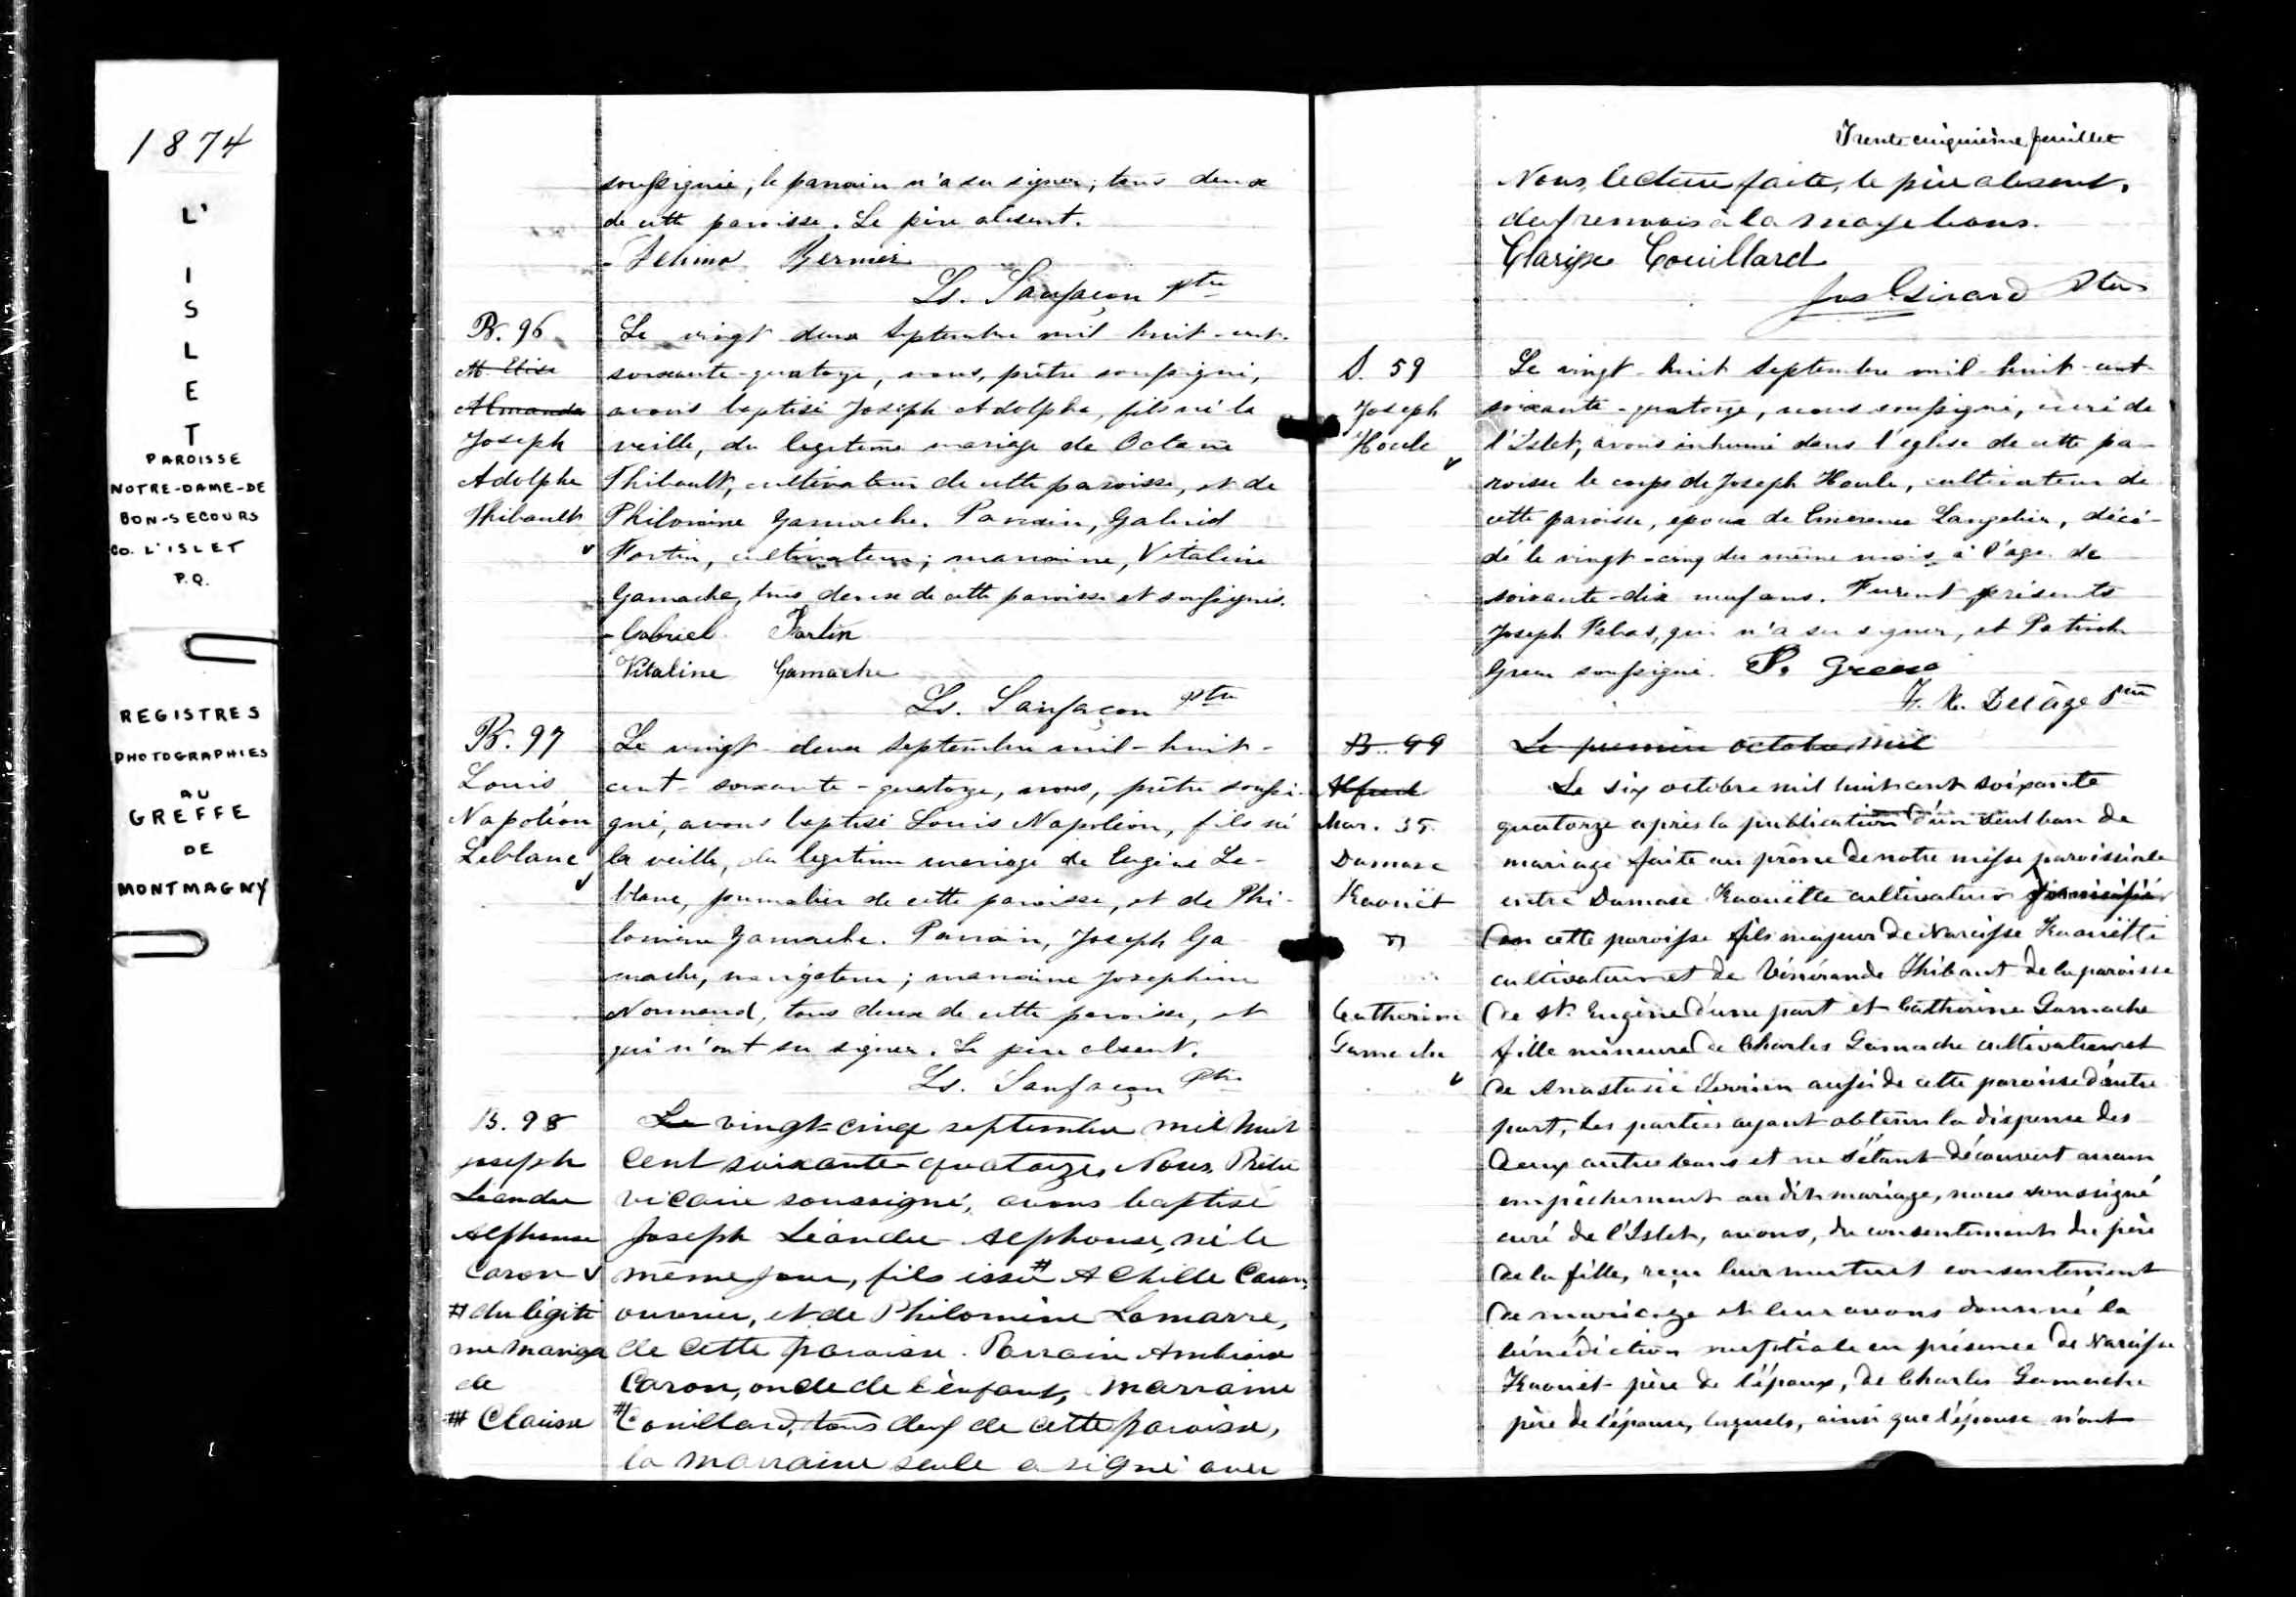 1874
L'
I
S
L
E
T
PAROISSE
NOTRE-DAME-DE
BON-SECOURS
CO. L'ISLET
P.Q.
REGISTRES
PHOTOGRAPHIES
AU
GREFFE
DE
MONTMAGNY
soussignée, le parrain n'a su signer, tous deux
de cette paroisse. Le père absent.
Bernier
Ls. Sanfaçon Ptre
B. 96
M. Elise
Almanda
Joseph
Adolphe
Thibault
Le vingt deux Septembre mil huit-cent-
soixante-quatorze, nous, prêtre soussigné,
avons baptisé Joseph Adolphe, fils né la
veille, du legitime mariage de Octave
Thibault, cultivateur de cette paroisse, et de
Philomène Gamache. Parrain, Gabriel
Fortin, cultivateur; marraine, Vitaline
Gamache, tous deux de cette paroisse et soussignés.
Gabriel Fortin
Vitaline Gamache
Ls. Sanfaçon Ptre
B. 97
Louis
Napoléon
Leblanc
Le vingt-deux septembre mil-huit-
cent-soixante-quatorze, nous, prêtre soussi-
gné, avons baptisé Louis Napoléon, fils né
la veille, du legitime mariage de Eugène Le-
blanc, journalier de cette paroisse, et de Phi-
lomène Gamache. Parrain, Joseph Ga
mache, navigateur; marraine Josephine
Normand, tous deux de cette paroisse, et
qui n'ont su signer. Le père absent.
Ls. Sanfaçon Ptre
B. 98
Joseph
Léandre
Alphonse
Caron
# du légiti
me mariage
de
## Clarisse
Le vingt-cinq septembre mil huit
cent soixante-quatorze, Nous, Prêtre
vicaire soussigné, avons baptisé
Joseph Léandre Alphonse, né le
même jour, fils issu # Achille Caron,
ouvrier, et de Philomène Lamarre,
de cette paroisse. Parrain Ambroise
Caron, oncle de l'enfant, marraine
## Couillard, tous deux de cette paroisse,
la marraine seule a signé avec
Trente cinquième feuillet
Nous, lecture faite, le père absent.
deux renvois à la marge bons.
Clarisse Couillard
Jos Girard Ptre
S. 59
Joseph
Houle
Le vingt-huit Septembre mil-huit-cent-
soixante-quatorze, nous soussigné, curé de
l'Islet, avons inhumé dans l'eglise de cette pa-
roisse le corps de Joseph Houle, cultivateur de
cette paroisse, epoux de Emerence Langelier, décé-
dé le vingt-cinq du même mois, à l'age de
soixante-dix neuf ans. Furent présents
Joseph qui n'a su signer, et Patrick
Green soussigné. P. Green
F. X. Delâge Ptre
B. 99
Alfred
Mar. 35.
Damase
Kaouët
et
Catherine
Gamache
Le premier octobre mil
Le six octobre mil huit cent soixante
quatorze après la publication d'un seul ban de
mariage faite au prône de notre messe paroissiale
entre Damase Kaouëtte cultivateur
de cette paroisse fils majeur de Narcisse Kaouëtte
cultivateur et de Vénérande Thibaut de la paroisse
de St. Eugène d'une part et Catherine Gamache
fille mineure de Charles Gamache cultivateur et
de Anastasie aussi de cette paroisse d'autre
part, les parties ayant obtenu la dispense des
deux autres bans et ne s'étant découvert aucun
empêchement au dit mariage, nous soussigné
curé de l'Islet, avons, du consentement du père
de la fille, reçu leur mutuel consentement
de mariage et leur avons donné la
bénédiction nuptiale en présence de Narcisse
Kaouët père de l'époux, de Charles Gamache
père de l'épouse, lesquels, ainsi que l'épouse n'ont